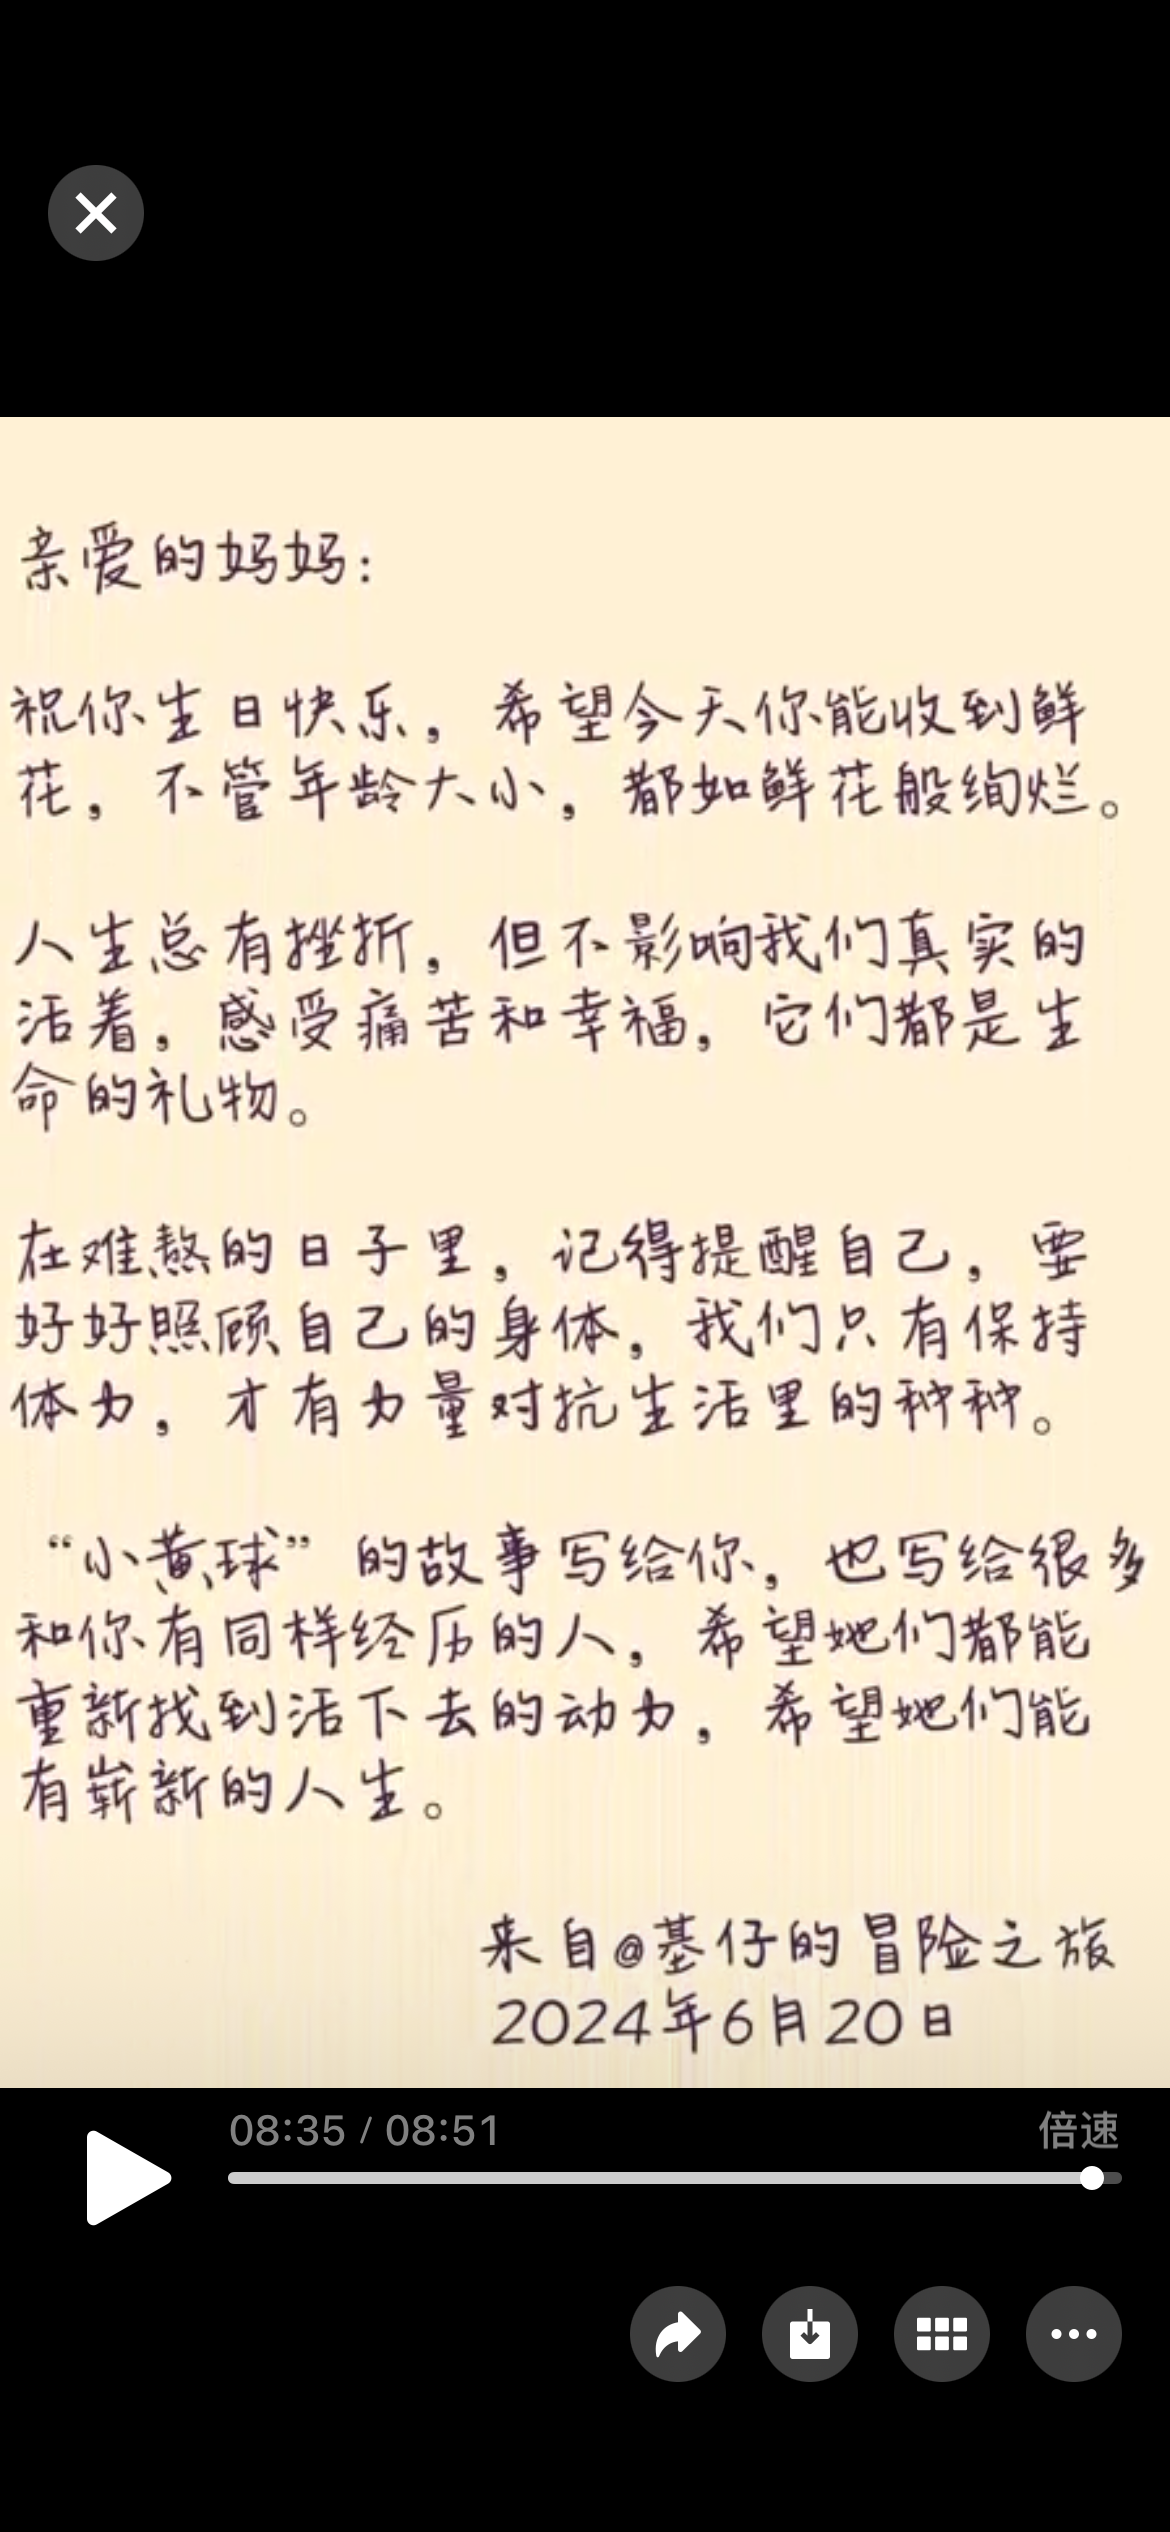 亲爱的妈妈：
祝你生日快乐，希望今天你能收到鲜
花，不管年龄大小，都如鲜花般绚烂。
人生总有挫折，但不影响我们真实的
活着，感受痛苦和幸福，它们都是生
命的礼物。
在难熬的日子里，记得提醒自己，要
好好照顾自己的身体，我们只有保持
体力，才有力量对抗生活里的种种。
“小黄球”的故事写给你，也写给很多
和你有同样经历的人，希望她们都能
重新找到活下去的动力，希望她们能
有崭新的人生。
来自@基仔的冒险之旅
2024年6月20日
08:35 / 08:51
倍速